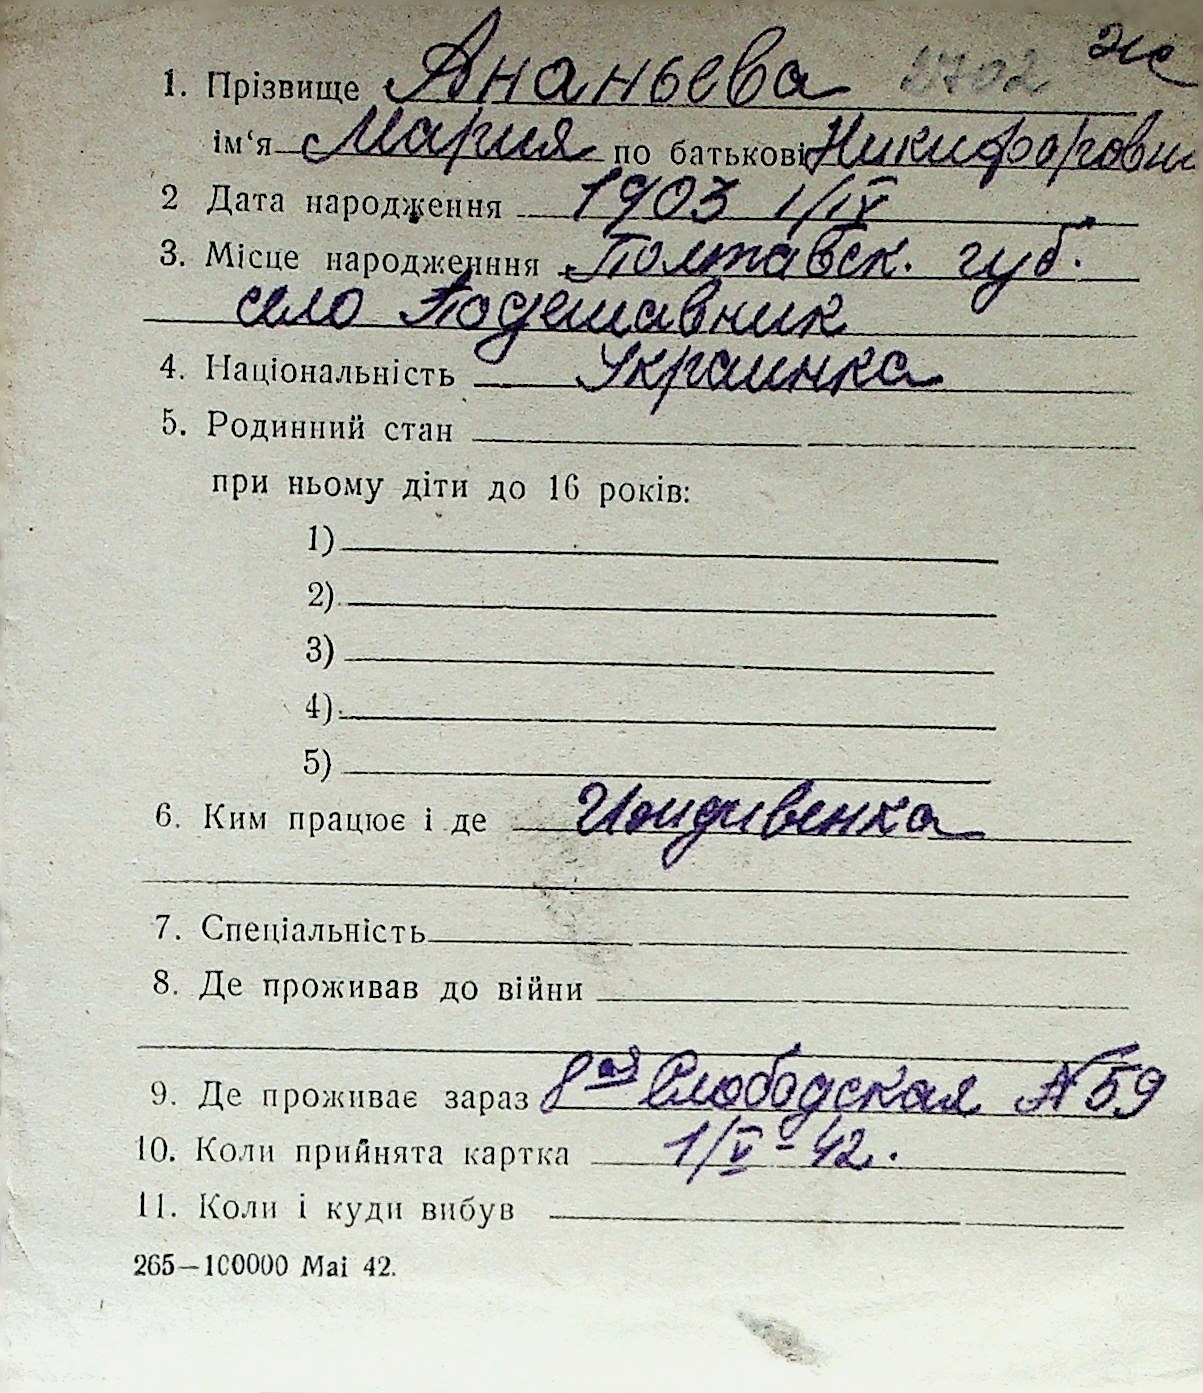 1. Прізвище Ананьева 2702 ж
ім'я Мария по батькові Никифоровн
2 Дата народження 1903 1/IV
3. Місце народженння Полтавск. губ.
село Подешавник
4. Національність Украинка
5. Родинний стан
при ньому діти до 16 років:
1)
2)
3)
4)
5)
6. Ким працює і де Иждивенка
7. Спеціальність
8. Де проживав до війни
9. Де проживає зараз 8ая Слободская №59
10. Коли прийнята картка 1/V-42.
11. Коли і куди вибув
265—100000 Mai 42.